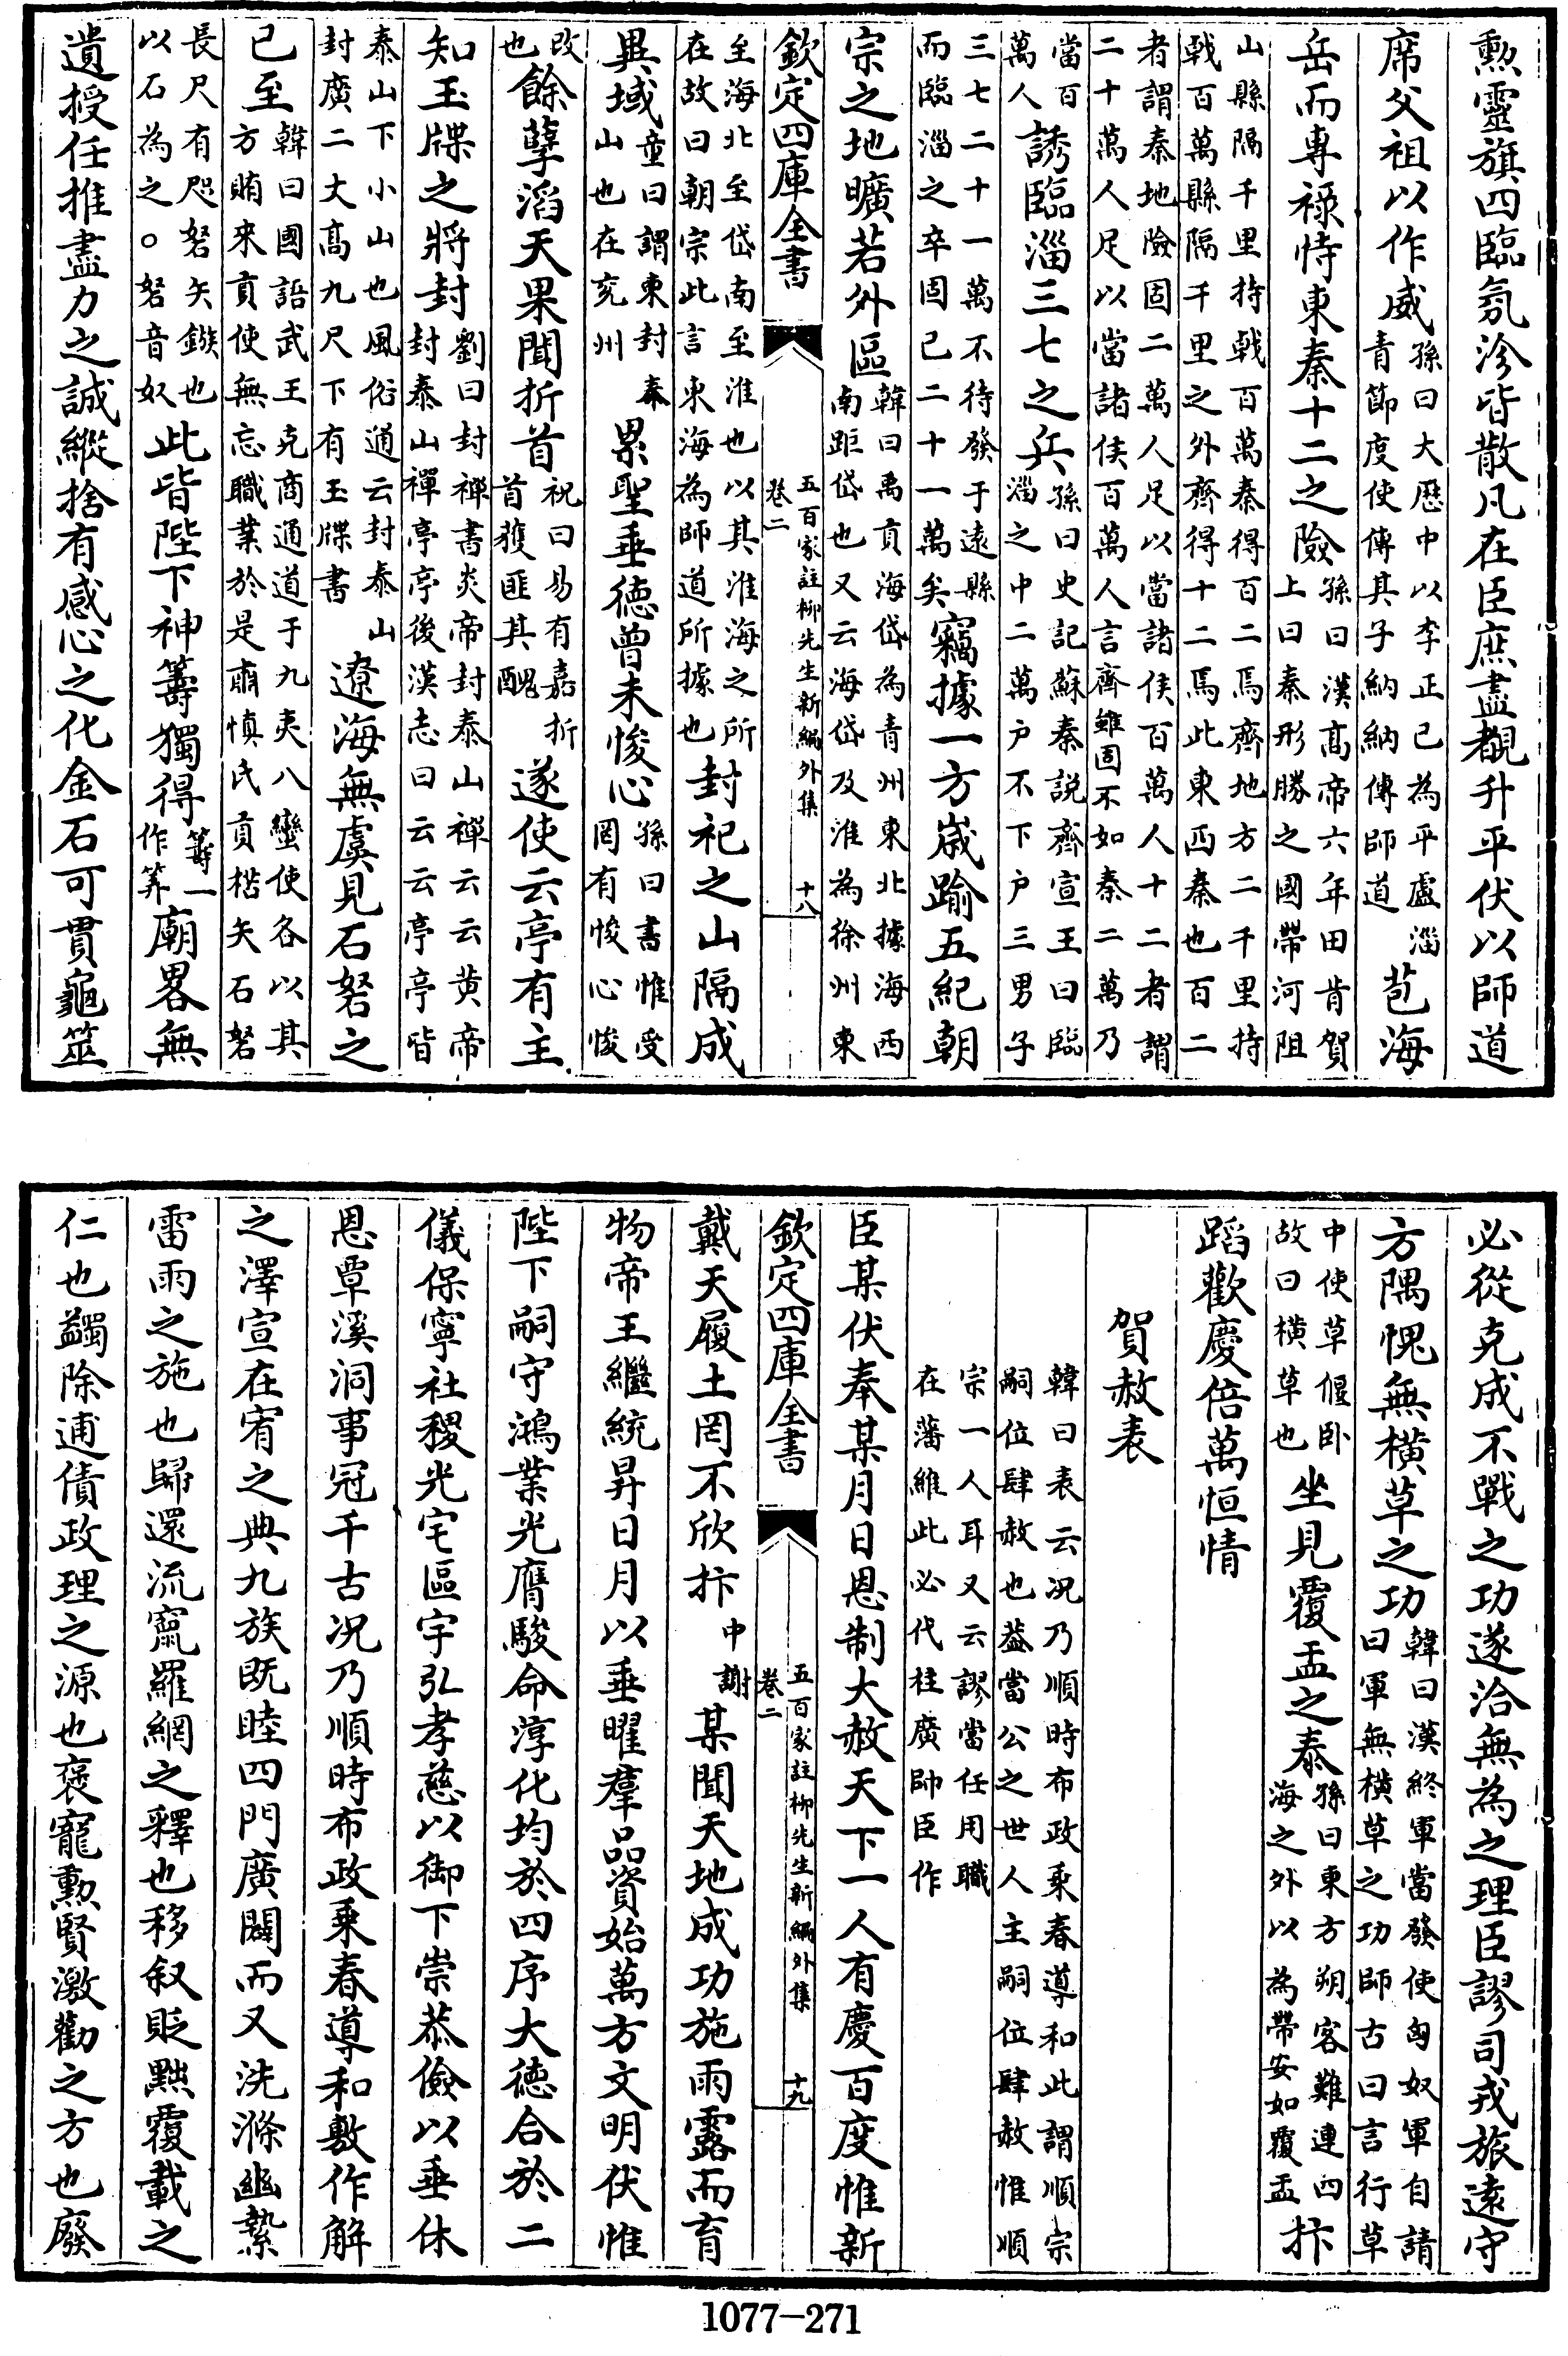 勲靈旗四臨氛沴皆散凡在臣庶盡覩升平伏以師道
席父祖以作威孫曰大厯中以李正己為平盧淄青節度使傳其子納納傳師道苞海
岳而專祿恃東秦十二之險孫曰漢高帝六年田肯賀上曰秦形勝之國帶河阻
山縣隔千里持戟百萬秦得百二焉齊地方二千里持戟百萬縣隔千里之外齊得十二焉此東西秦也百二
者謂秦地險固二萬人足以當諸侯百萬人十二者謂二十萬人足以當諸侯百萬人言齊雖固不如秦二萬乃
當百萬人誘臨淄三七之兵孫曰史記蘇秦説齊宣王曰臨淄之中二萬户不下户三男子
三七二十一萬不待發于遠縣而臨淄之卒固已二十一萬矣竊據一方嵗踰五紀朝
宗之地曠若外區韓曰禹貢海岱為青州東北據海西南距岱也又云海岱及淮為徐州東
欽定四庫全書 五百家註柳先生新編外集 卷二 十八
至海北至岱南至淮也以其淮海之所在故曰朝宗此言東海為師道所據也封祀之山隔成
異域童曰謂東封泰山也在兖州累聖垂徳曾未悛心孫曰書惟受罔有悛心悛
改也餘孽滔天果聞折首祝曰易有嘉折首獲匪其醜遂使云亭有主
知玉牒之將封劉曰封禪書炎帝封泰山禪云云黄帝封泰山禪亭亭後漢志曰云云亭亭皆
泰山下小山也風俗通云封泰山封廣二丈高九尺下有玉牒書遼海無虞見石砮之
已至韓曰國語武王克商通道于九夷八蠻使各以其方賄來貢使無忘職業於是肅慎氏貢楛矢石砮
長尺有咫砮矢鏃也以石為之○砮音奴此皆陛下神籌獨得籌一作筭廟畧無
遺授任推盡力之誠縱捨有感心之化金石可貫龜筮
必從克成不戰之功遂洽無為之理臣謬司戎旅遠守
方隅愧無横草之功韓曰漢終軍當發使匈奴軍自請曰軍無横草之功師古曰言行草
中使草偃卧故曰横草也坐見覆盂之泰孫曰東方朔客難連四海之外以為帶安如覆盂抃
蹈歡慶倍萬恒情
賀赦表
韓曰表云况乃順時布政乘春導和此謂順宗嗣位肆赦也葢當公之世人主嗣位肆赦惟順
宗一人耳又云謬當任用職在藩維此必代柱廣帥臣作
臣某伏奉某月日恩制大赦天下一人有慶百度惟新
欽定四庫全書 五百家註柳先生新編外集 卷二 十九
戴天履土罔不欣抃中謝某聞天地成功施雨露而育
物帝王繼統昇日月以垂曜羣品資始萬方文明伏惟
陛下嗣守鴻業光膺駿命淳化均於四序大德合於二
儀保寧社稷光宅區宇弘孝慈以御下崇恭儉以垂休
恩覃溪洞事冠千古况乃順時布政乘春導和敷作解
之澤宣在宥之典九族既睦四門廣闢而又洗滌幽縶
雷雨之施也歸還流竄羅網之釋也移叙貶黜覆載之
仁也蠲除逋債政理之源也褒寵勲賢激勸之方也廢
1077-271